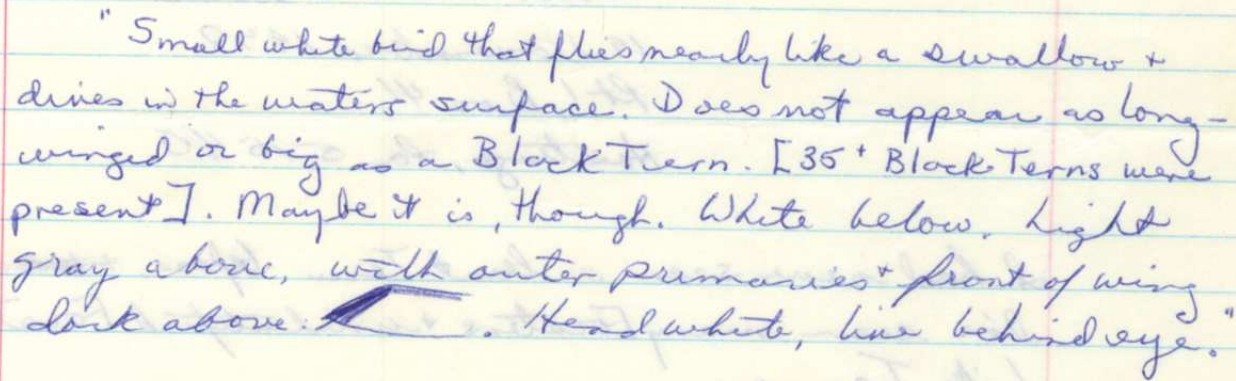 "Small white bird that flies nearly like a swallow +
dives in the waters surface. Does not appear as long-
winged or big as a Black Tern. [35+ Black Terns were
present]. Maybe it is, though. White below. Light
gray above, with outer primaries + front of wing
dark above: . Head white, line behind eye."